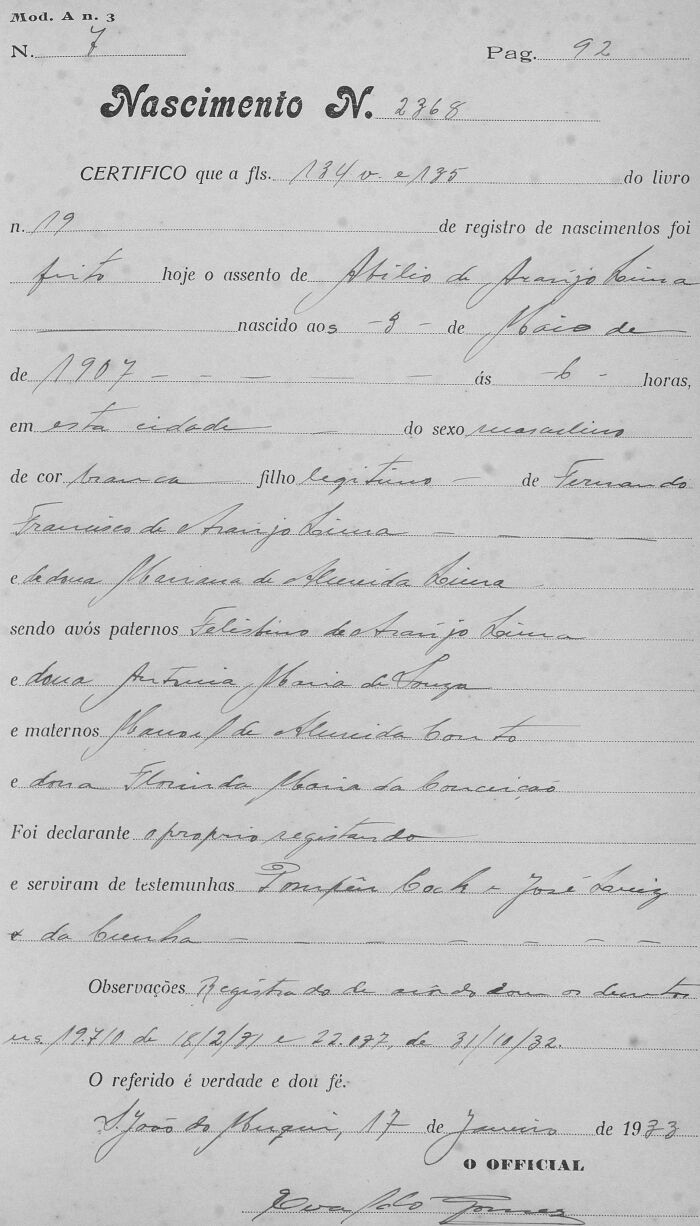 Mod. A n. 3
N. 7 Pag. 92
Nascimento N. 2368
CERTIFICO que a fls. 134 v. e 135 do livro
n. 19 de registro de nascimentos foi
feito hoje o assento de Abilio de Araujo Lima
nascido aos - 3 - de Maio de
de 1907 - - - - - - ás - 6 - horas,
em esta cidade - do sexo masculino
de cor branca filho legitimo - de Fernando
Francisco de Araujo Lima - - - -
e de dona Mariana de Almeida Lima
sendo avós paternos Felisbino de Araujo Lima
e dona Antonia Maria de Souza
e maternos Manoel de Almeida Couto
e dona Florinda Maria da Conceição
Foi declarante o proprio registando
e serviram de testemunhas Pompeu Cock e José Luiz
da Cunha - - - - - - -
Observações Registrado de acôrdo com os decretos
ns. 19.710 de 18/2/31 e 22.037, de 31/10/32.
O referido é verdade e dou fé.
S. João do Muqui, 17 de Janeiro de 1933
O OFFICIAL
Gomes